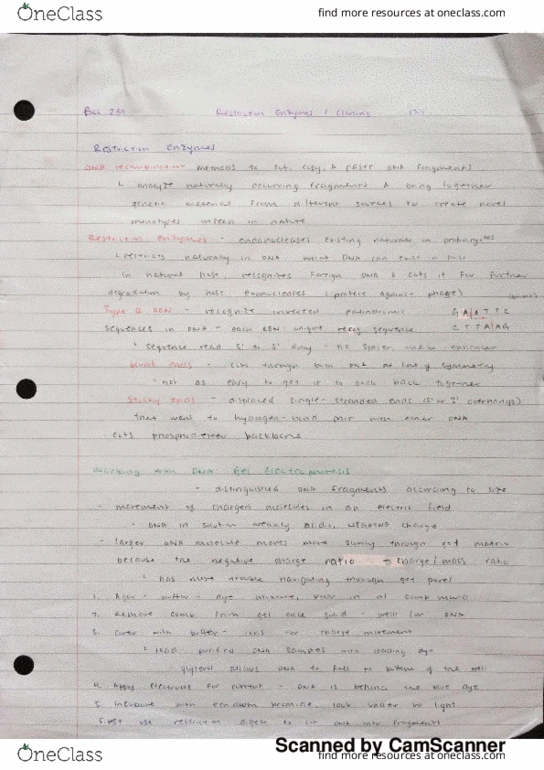 OneClass
find more resources at oneclass.com
Restriction Enzymes / Cloning
Restriction Enzymes
DNA recombination methods to cut, copy, & paste DNA fragments
↳ analyze naturally occurring fragments & bring together
genetic material from different sources to create novel
in nature
Restriction enzymes - endonucleases existing naturally in prokaryotes
↳ restricts naturally in DNA what DNA can exist in host
In natural host, recognizes foreign DNA & cuts it for further
degradation by host exonucleases (protect against phage)
Type II - recognize inverted palindromic G A A T T C
sequences in DNA - each unique recog sequence C T T A A G
sequence read 5' to 3'
Blunt ends - cuts through both DNA at line of symmetry
not as easy to get it to stick back together
Sticky ends - displaced single-stranded ends (5' or 3' overhangs)
that want to hydrogen-bond pair with other DNA
- cuts phosphodiester backbone
Working with DNA: Gel Electrophoresis
- distinguishes DNA fragments according to size
- movement of charged molecules in an electric field
- DNA in solution weakly acidic, negative charge
- larger DNA molecule moves more slowly through gel matrix
because the negative charge ratio → charge/mass ratio
has more trouble navigating through gel
1. Agar - buffer - dye mixture,
2. Remove comb from gel once solid - well for DNA
3. Cover with buffer - ions for charge movement
load purified DNA samples with loading dye
glycerol allows DNA to fall to bottom of the well
4. Apply for current - DNA is behind the blue dye
5. Incubate with ethidium bromide, look under UV light
First use restriction digest to cut DNA into fragments
Scanned by CamScanner
OneClass
find more resources at oneclass.com